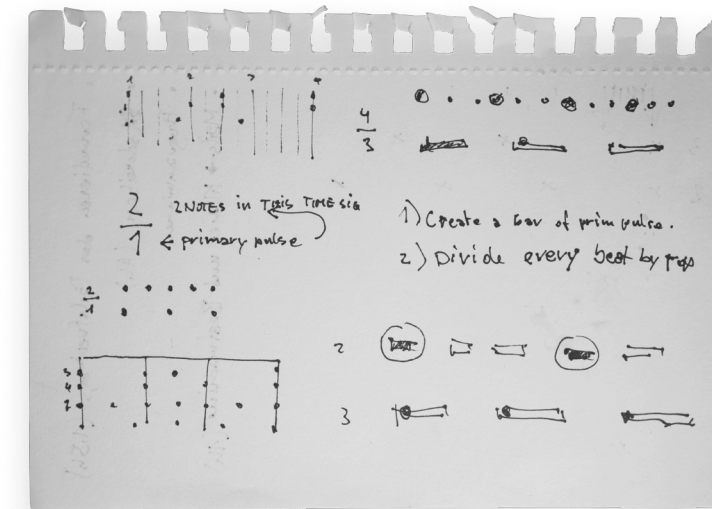 1 2 3 4
4
3
2
1
2 NOTES in THIS TIME SIG
← primary pulse
1) Create a bar of prim pulse.
2) Divide every beat by
2
1
3
4
2
2
3